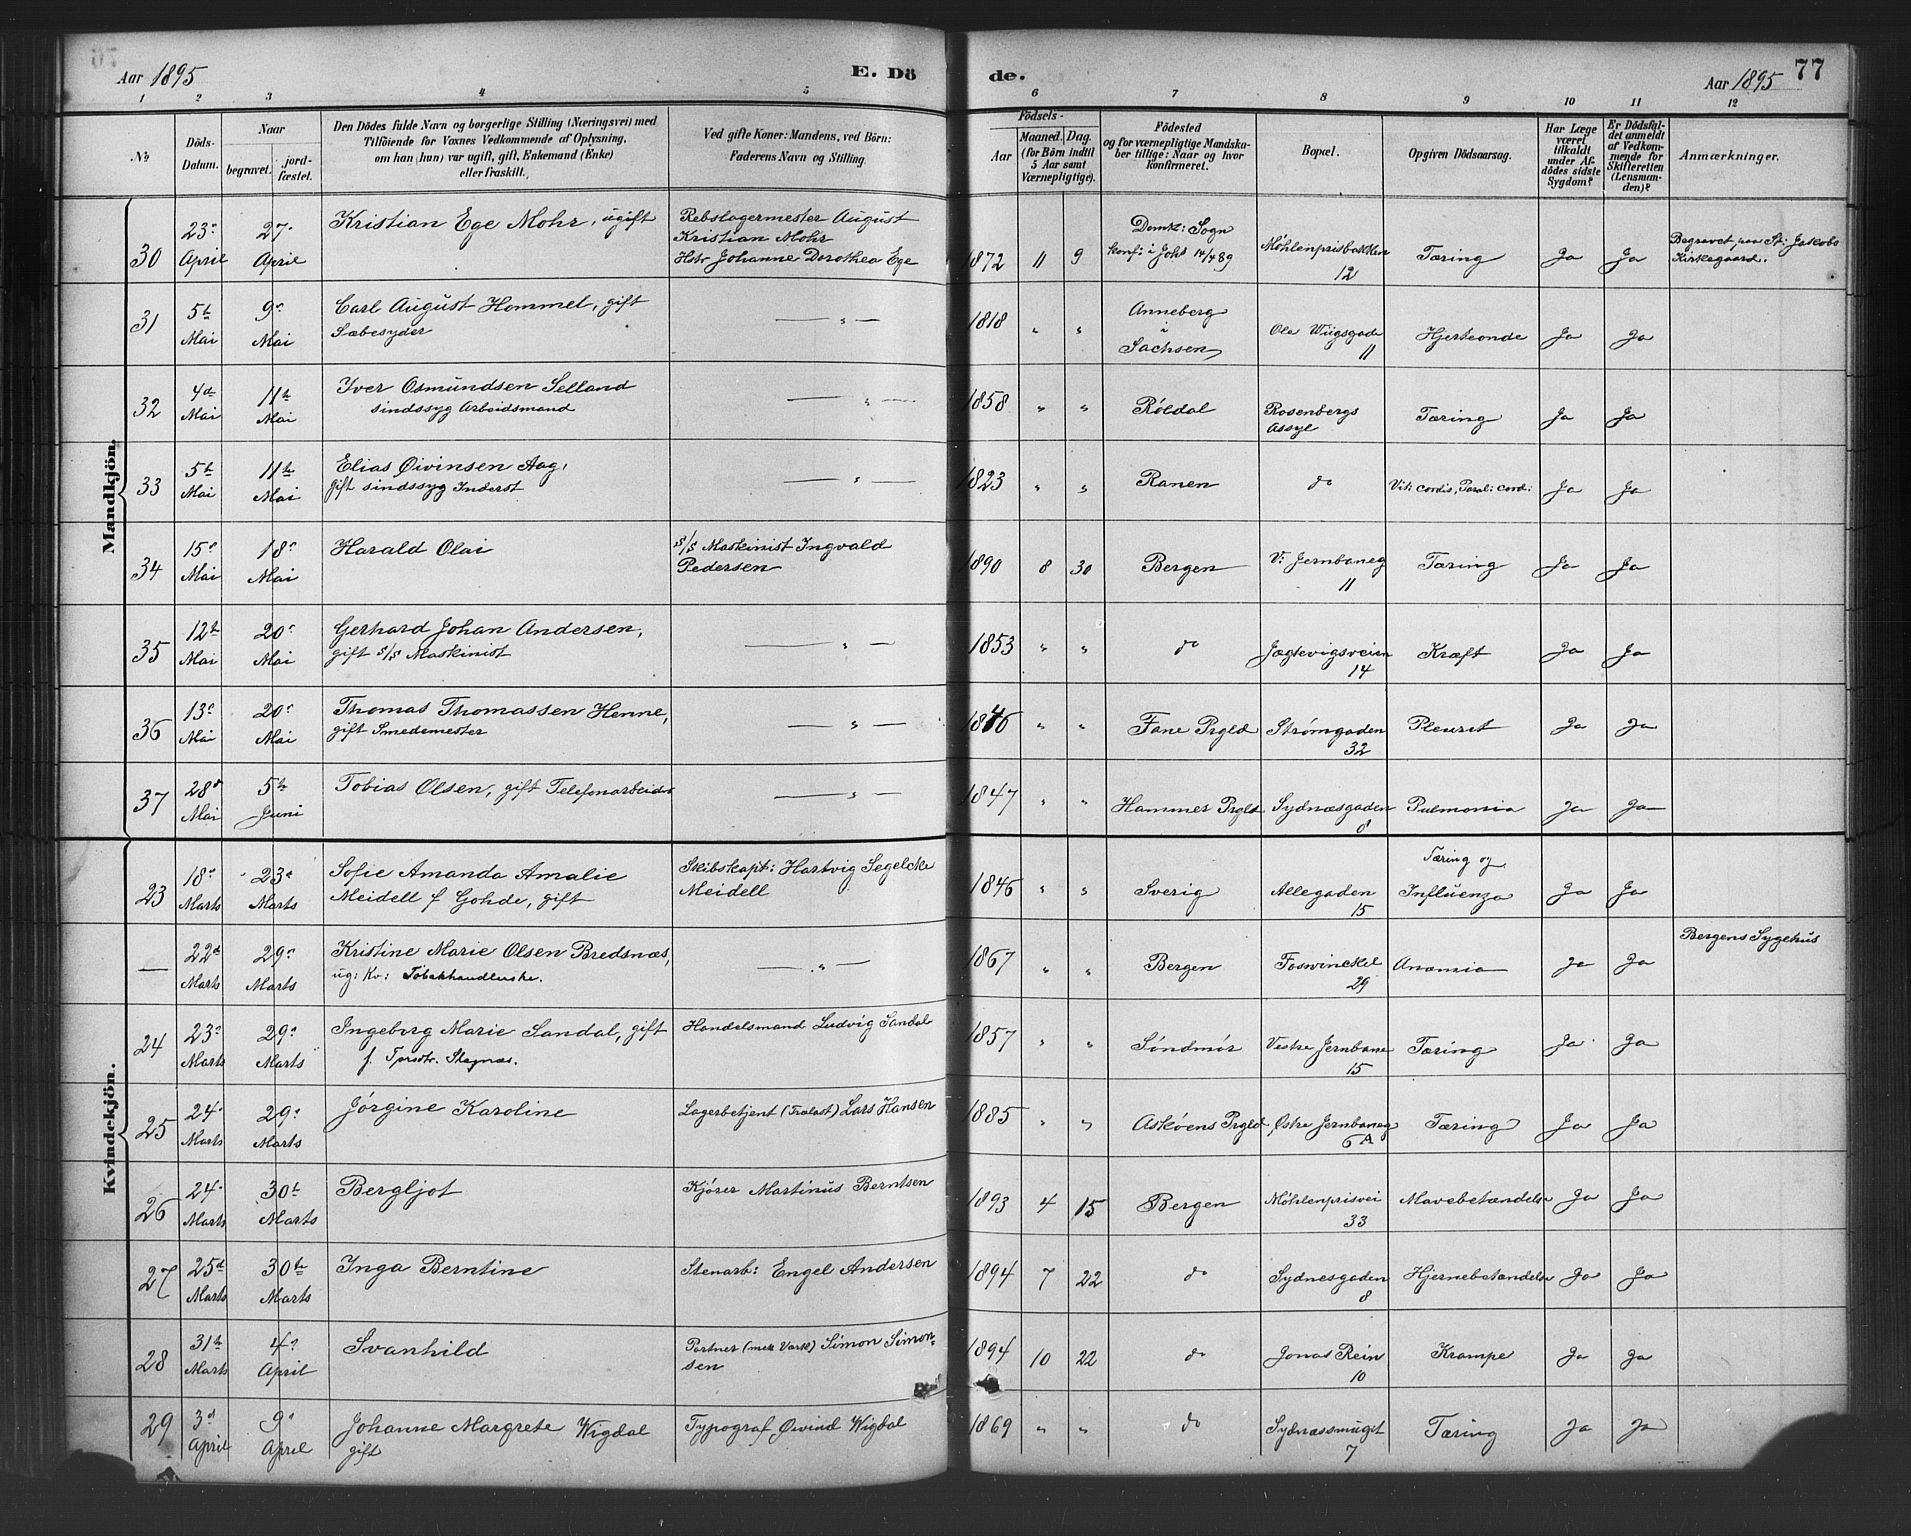 Aar 1895 E. Dö de. Aar 1895 77
1 2 3 4 5 6 7 8 9 10 11 12
No Döds-Datum. Naar begravet. jord-fæstet. Den Dödes fulde Navn og borgerlige Stilling (Næringsvei) med Tilföiende for Voxnes Vedkommende af Oplysning, om han (hun) var ugift, gift, Enkemand (Enke) eller fraskilt. Ved gifte Koner: Mandens, ved Börn: Faderens Navn og Stilling. Födsels- Aar Maaned. Dag. (for Börn indtil 5 Aar samt Værnepligtige). Födested og for værnepligtige Mandskaber tillige: Naar og hvor konfirmeret. Bopæl. Opgiven Dödsaarsag. Har Læge været tilkaldt under Afdödes sidste Sygdom? Er Dödsfaldet anmeldt af Vedkommende for Skifteretten (Lensmanden)? Anmærkninger.
Mandkjön.
30 23 April 27 April Kristian Ege Mohr, ugift Rebslagermester August Kristian Mohr Hstr Johanne Dorothea Ege 1872 11 9 Domk: Sogn konf: i Johs 14/4 89 Møhlenprisbakken 12 Tæring Ja Ja Begravet paa St: Jakobs Kirkegaard.
31 5te Mai 9 Mai Carl August Hommel, gift Sæbesyder — " — 1818 " " Anneberg i Sachsen Ole Wiigsgade 11 Hjerteonde Ja Ja
32 4de Mai 11te Mai Iver Osmundsen Selland sindssyg Arbeidsmand — " — 1858 " " Röldal Rosenbergs Assyl Tæring Ja Ja
33 5te Mai 11te Mai Elias Øivinsen Aag, gift sindssyg Inderst — " — 1823 " " Ranen do Vit: cordis, Paral: cord: Ja Ja
34 15 Mai 18 Mai Harald Olai s/s Maskinist Ingvald Pedersen 1890 8 30 Bergen V: Jernbaneg 11 Tæring Ja Ja
35 12te Mai 20 Mai Gerhard Johan Andersen, gift s/s Maskinist — " — 1853 " " do Jægtevigsveien 14 Kræft Ja Ja
36 13 Mai 20 Mai Thomas Thomassen Henne, gift Smedemester — " — 1846 " " Fane Prgld Strømgaden 32 Pleurit Ja Ja
37 28 Mai 5te Juni Tobias Olsen, gift Telefonarbeider — " — 1847 " " Hammer Prgld Sydnæsgaden 8 Pulmonia Ja Ja
Kvindekjön.
23 18 Marts 23d Marts Sofie Amanda Amalie Meidell f Gohde, gift Skibskapt: Hartvig Segelcke Meidell 1846 " " Sverig Allegaden 15 Tæring og Influenza Ja Ja
— 22d Marts 29 Marts Kristine Marie Olsen Bredsnæs, ug: Kv: Tobakhandlerske. — " — 1867 " " Bergen Fosvinckel 29 Anæmia Ja Ja Bergens Sygehus
24 23 Marts 29 Marts Ingeborg Marie Sandal, gift Handelsmand Ludvig Sandal 1857 " " Söndmör Vestre Jernbane 15 Tæring Ja Ja
25 24 Marts 29 Marts Jörgine Karoline Lagerbetjent (Trælast) Lars Hansen 1885 " " Askøens Prgld Østre Jernbaneg 6A Tæring Ja Ja
26 24 Marts 30te Marts Bergljot Kjører Martinus Berntsen 1893 4 15 Bergen Møhlenprisvei 33 Mavebetændelse Ja Ja
27 25d Marts 30te Marts Inga Berntine Stenarb: Engel Andersen 1894 7 22 do Sydnesgaden 8 Hjernebetændelse Ja Ja
28 31te Marts 4 April Svanhild Portner (mek Værk) Simon Simonsen 1894 10 22 do Jonas Rein 10 Krampe Ja Ja
29 3d April 9 April Johanne Margrete Wigdal gift Typograf Øivind Wigdal 1869 " " do Sydnæssmuget 7 Tæring Ja Ja